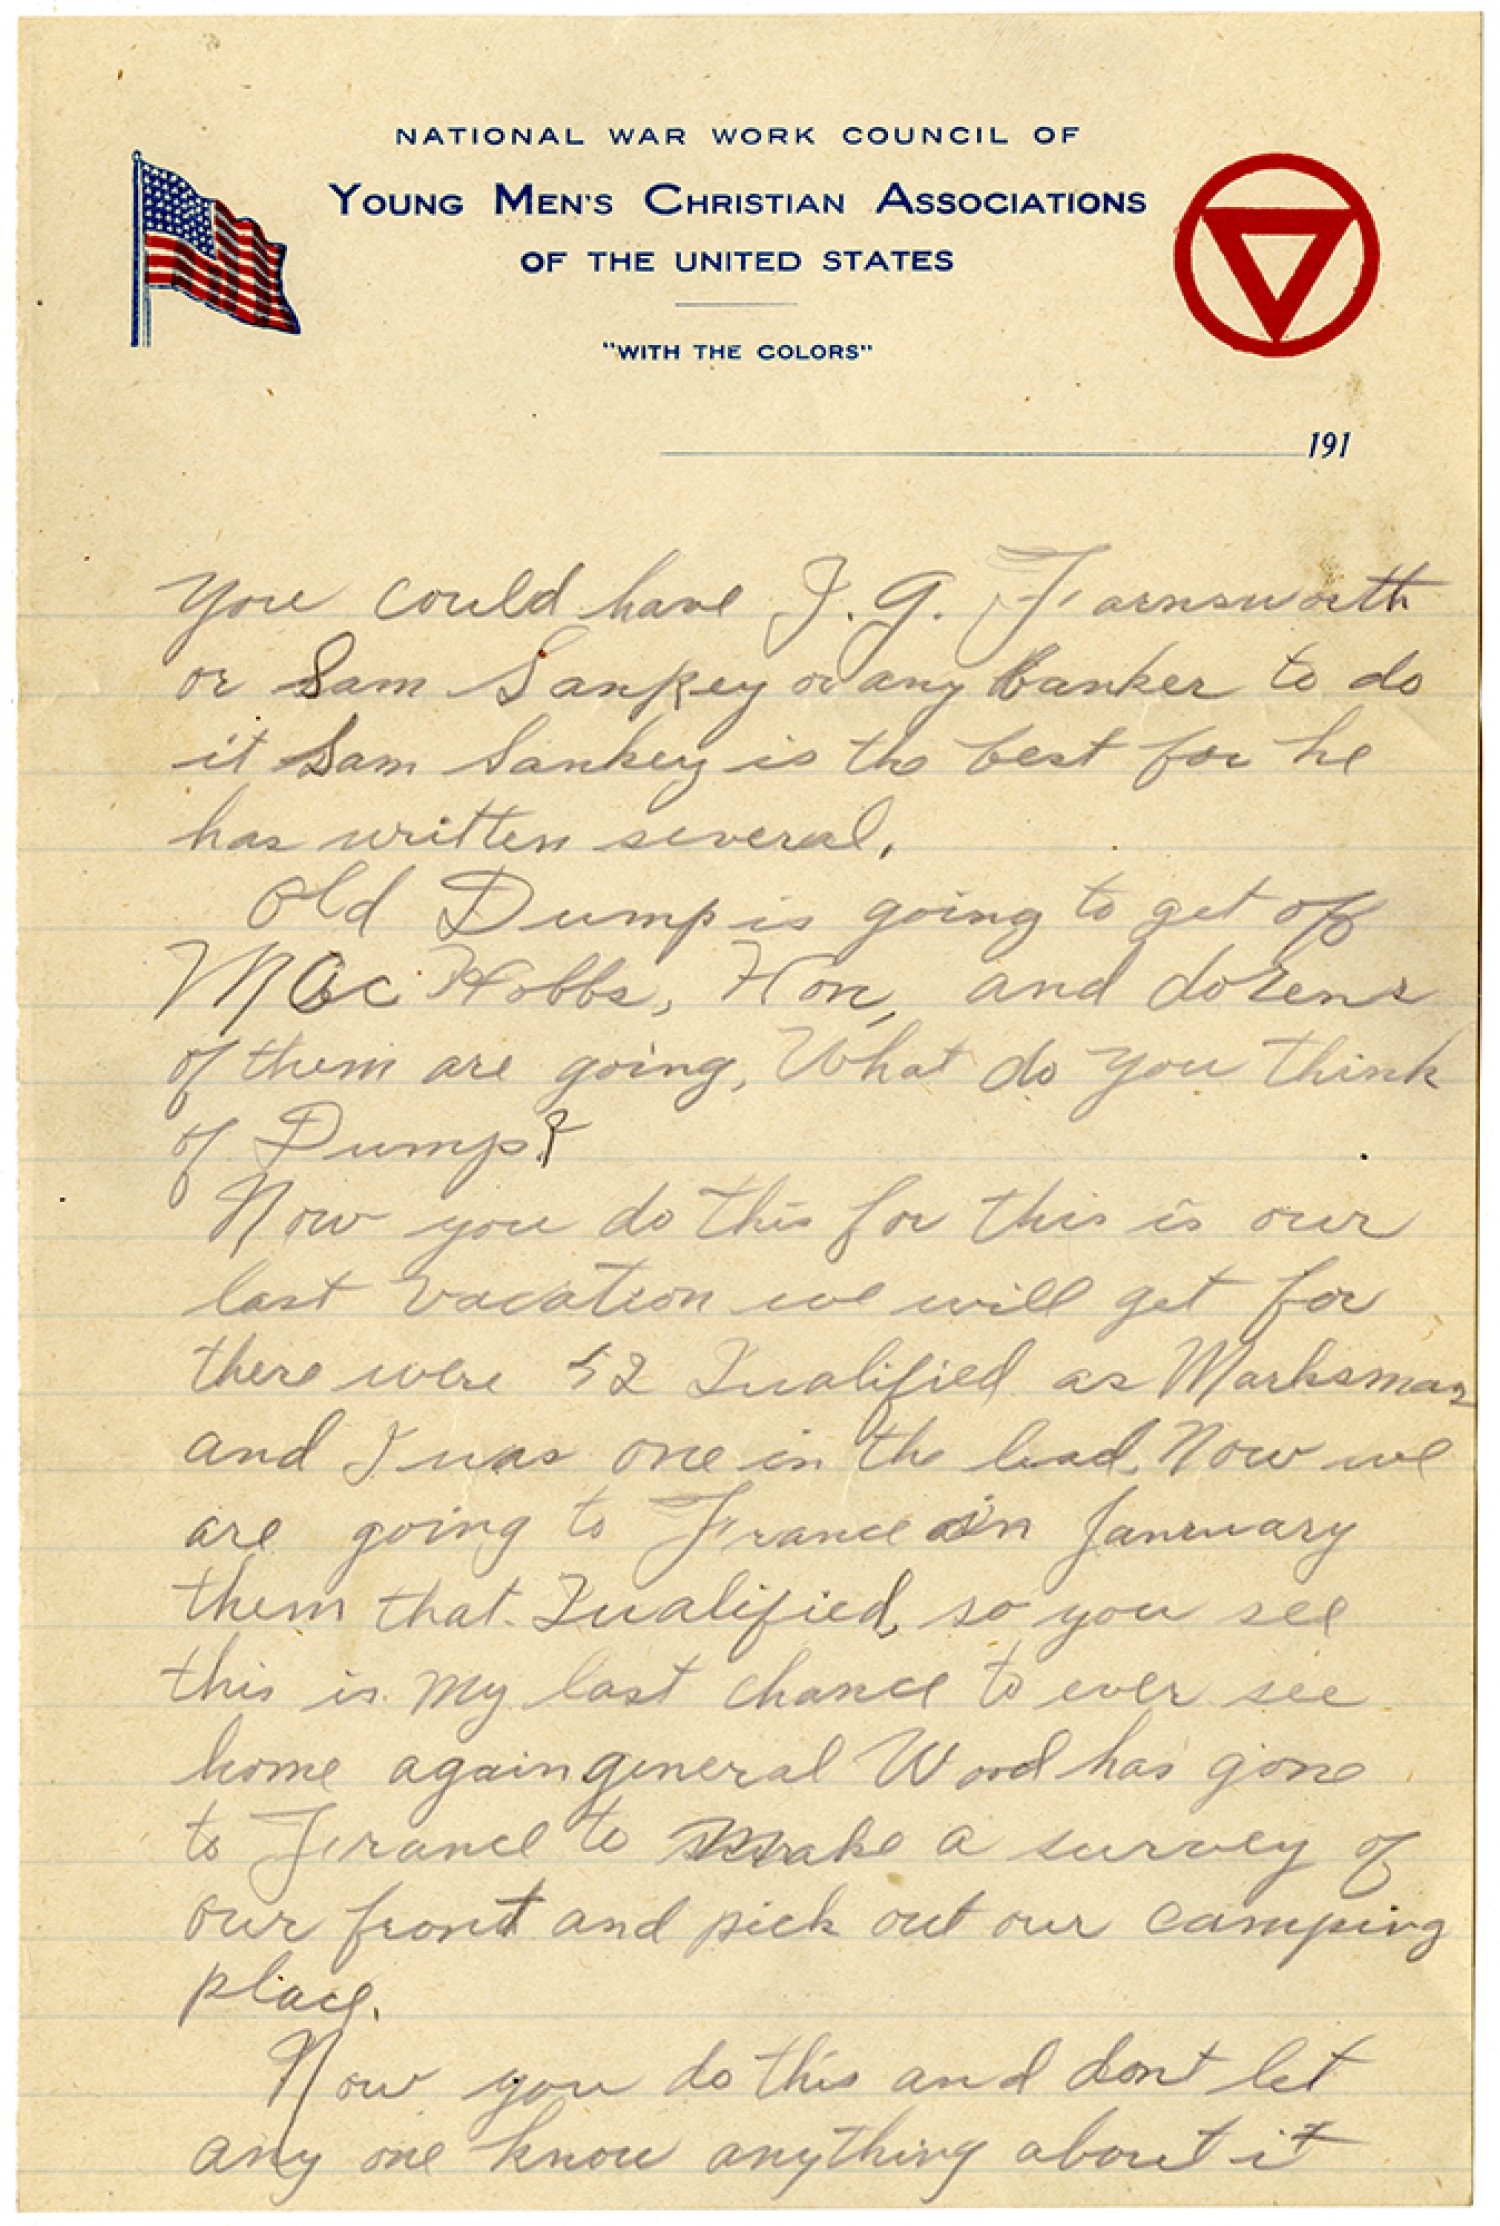 NATIONAL WAR WORK COUNCIL OF
YOUNG MEN'S CHRISTIAN ASSOCIATIONS
OF THE UNITED STATES
"WITH THE COLORS"
191
you could have J. G. Farnsworth
or Sam Sankey or any banker to do
it Sam Sankey is the best for he
has written several.
Old Dump is going to get of
Mac Hobbs, Hon, and dozens
of them are going. What do you think
of Dump?
Now you do this for this is our
last vacation we will get for
there were 52 Qualified as Marksman
and I was one in the lead. Now we
are going to France in January
them that Qualified, so you see
this is my last chance to ever see
home again general Wood has gone
to France to make a survey of
our front and pick out our camping
place.
Now you do this and dont let
any one know anything about it